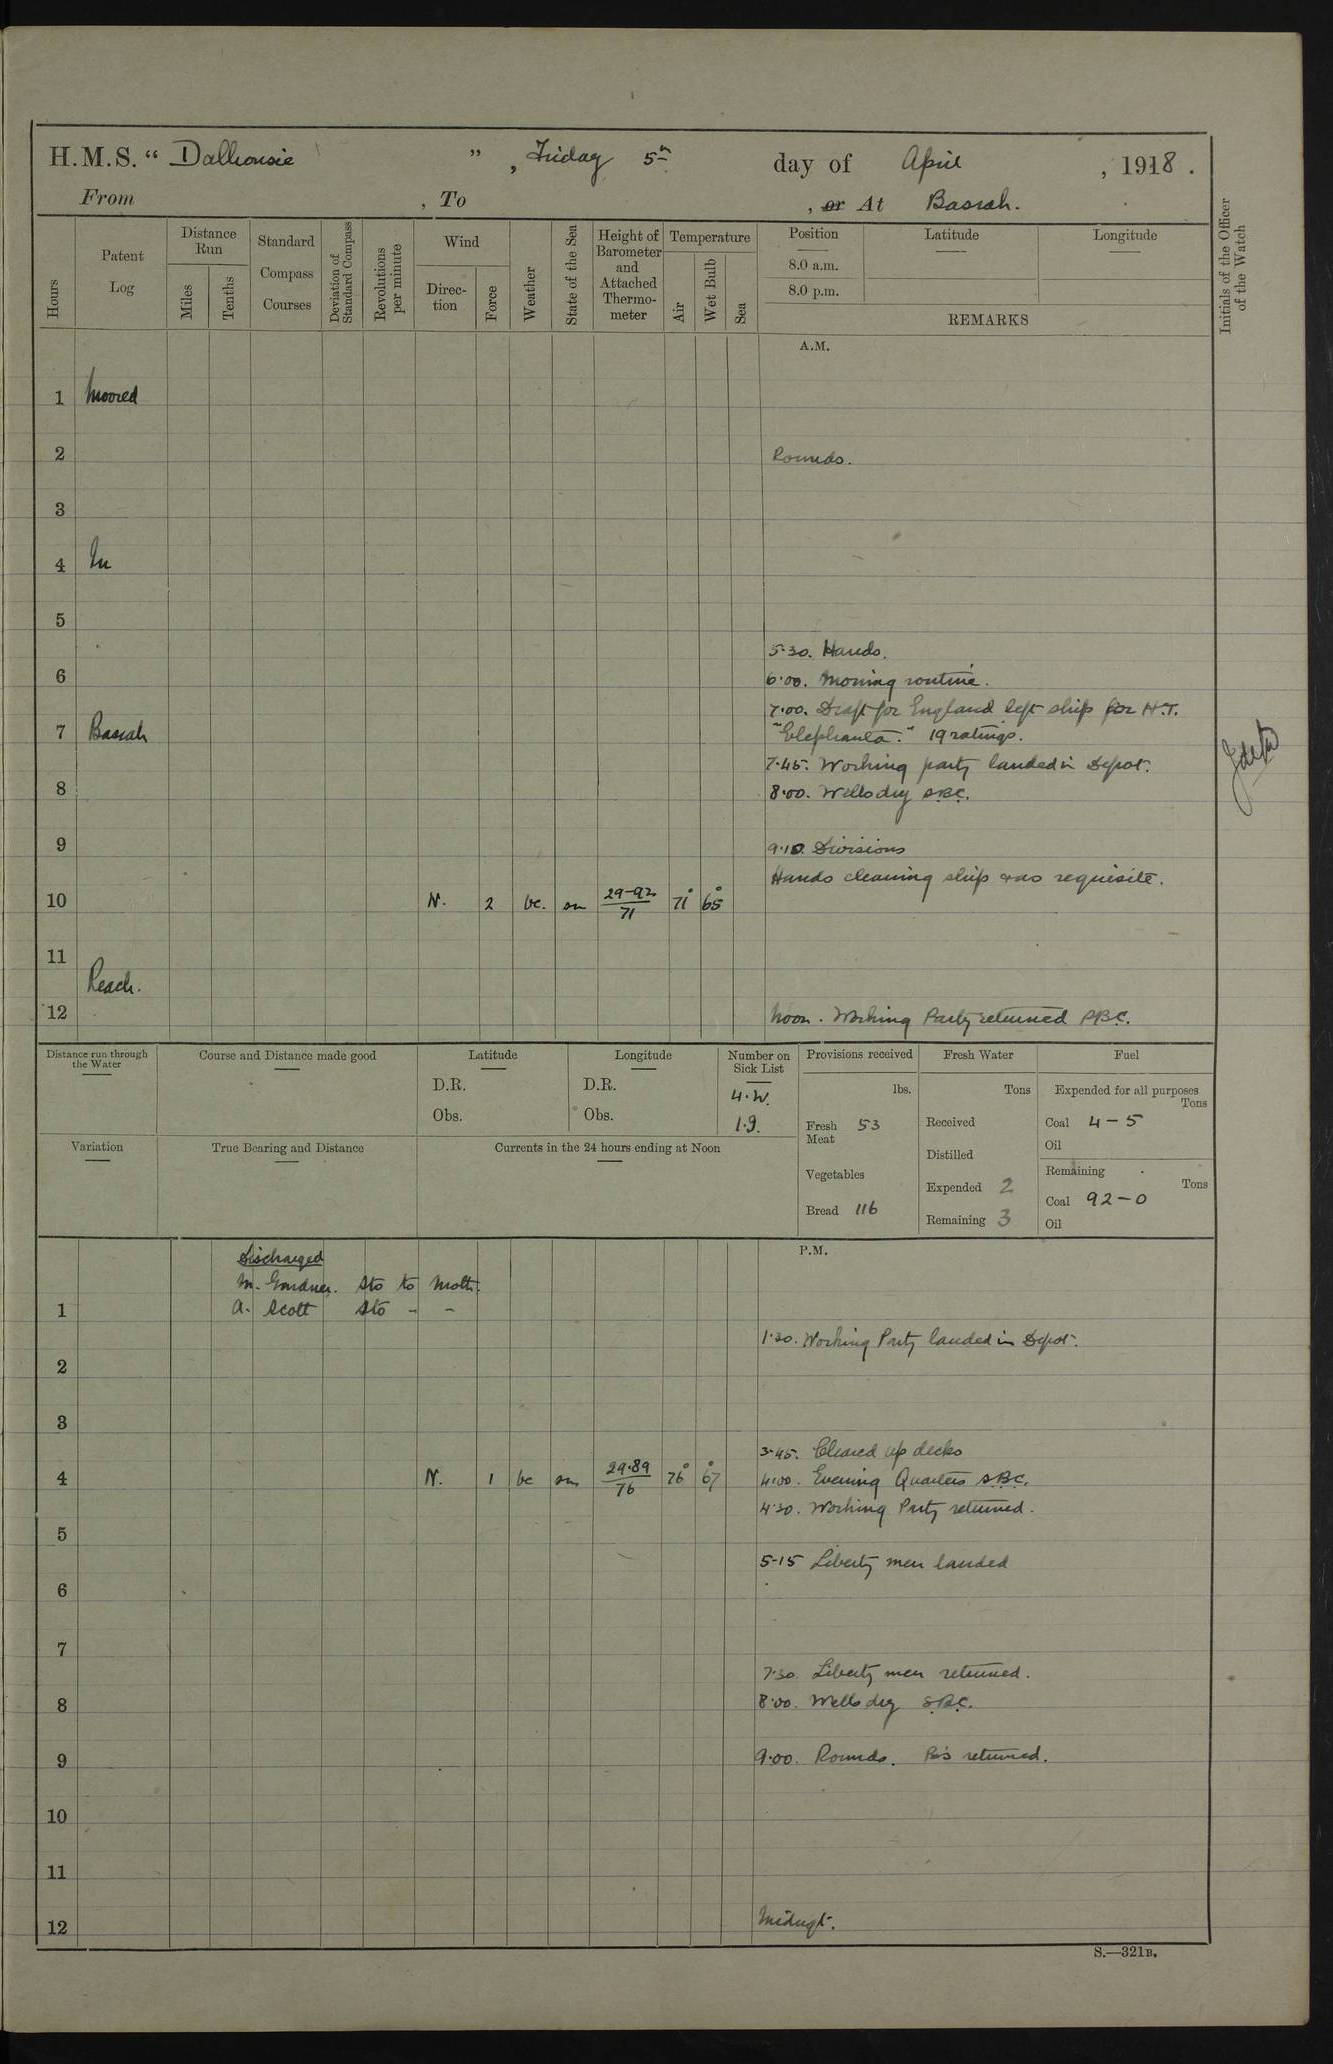 H.M.S. “ Dalhousie ” , Friday 5th day of April , 1918 .
From , To , or At Basrah.
Hours
Patent Log
Distance Run
Miles
Tenths
Standard Compass Courses
Deviation of Standard Compass
Revolutions per minute
Wind
Direc- tion
Force
Weather
State of the Sea
Height of Barometer and Attached Thermo- meter
Temperature
Air
Wet Bulb
Sea
Position
8.0 a.m.
8.0 p.m.
Latitude
Longitude
REMARKS
Initials of the Officer of the Watch
A.M.
1 Moored
2 Rounds.
3
4 In
5
5.30. Hands.
6
6.00. Morning routine.
7.00. Draft for England left ship for H.T.
7 Basrah "Elephanta." 19 ratings.
7.45. Working party landed in Depot.
8
8.00. Wells dry S.B.C.
9
9.10. Divisions
Hands cleaning ship & as requisite.
10 N. 2 bc. sm 29-92 71 71° 65°
11
Reach.
12 Noon. Working Party returned S.B.C.
Distance run through the Water
Course and Distance made good
Latitude
D.R.
Obs.
Longitude
D.R.
Obs.
Number on Sick List
4.W.
1.I.
Provisions received
lbs.
Fresh Meat 53
Vegetables
Bread 116
Fresh Water
Tons
Received
Distilled
Expended 2
Remaining 3
Fuel
Expended for all purposes
Tons
Coal 4-5
Oil
Remaining
Tons
Coal 92-0
Oil
Variation
True Bearing and Distance
Currents in the 24 hours ending at Noon
P.M.
Discharged
M. Gardner. Sto to Moth.
1 A. Scott Sto - -
1.30. Working Party landed in Depot.
2
3
3.45. Cleared up decks
4 N. 1 bc sm 29.89 76 76° 67° 4.00. Evening Quarters S.B.C.
4.30. Working Party returned.
5
5-15 Liberty men landed
6
7
7.30. Liberty men returned.
8 8.00. Wells dry S.B.C.
9 9.00. Rounds. P.O's returned.
10
11
12 Midngt.
S.—321B.